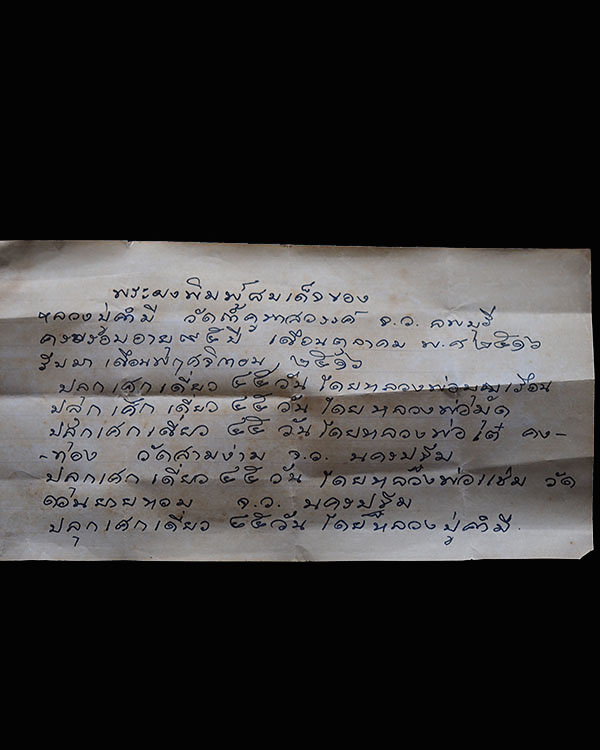 พระผงพิมพ์สมเด็จของ
หลวงปู่คำมี วัดถ้ำคูหาสวรรค์ จ.ว. ลพบุรี
ครบรอบอายุ ๘๕ ปี เดือนตุลาคม พ.ศ ๒๕๑๖
รับมาเดือนพฤศจิกายน ๒๕๑๖
ปลุกเศกเดี่ยว ๔๕ วัน โดยหลวงพ่อ
ปลุกเศกเดี่ยว ๔๕ วัน โดยหลวงพ่อมัด
ปลุกเศกเดี่ยว ๔๕ วัน โดยหลวงพ่อเต๋ คง-
-ทอง วัดสามง่าม จ.ว. นครปฐม
ปลุกเศกเดี่ยว ๔๕ วัน โดยหลวงพ่อแช่ม วัด
ดอนยายหอม จ.ว. นครปฐม
ปลุกเศกเดี่ยว ๔๕ วัน โดยหลวงปู่คำมี.